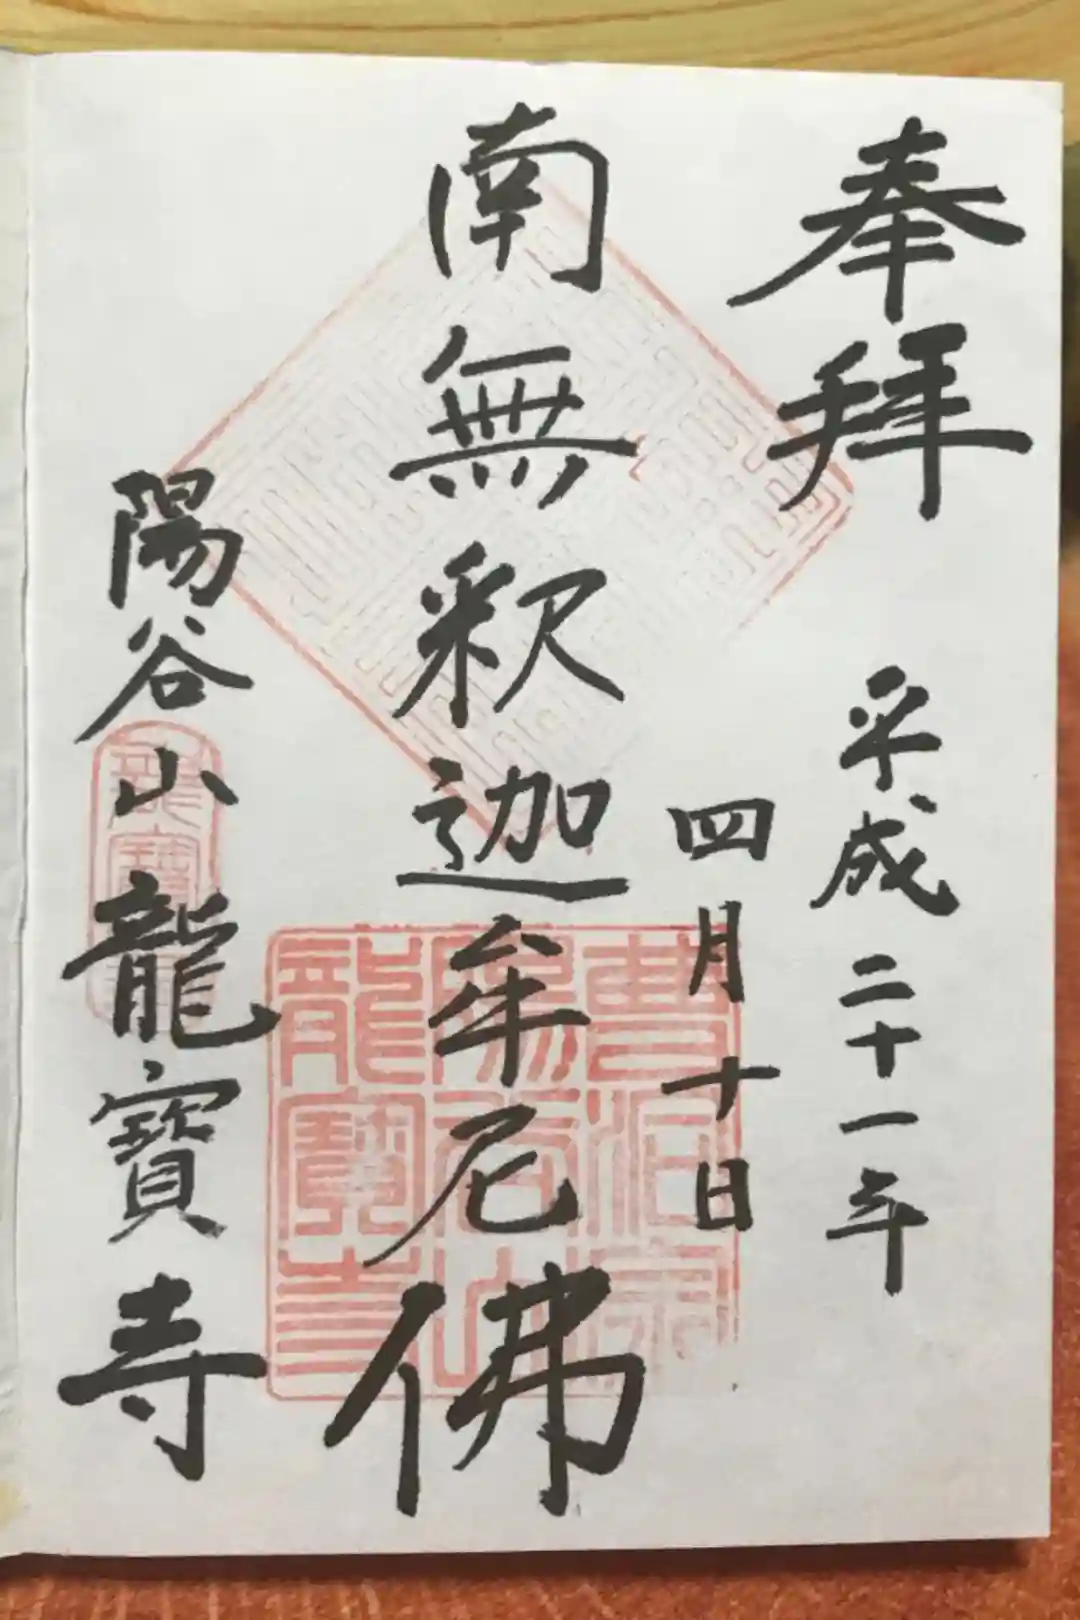 奉拜
平成二十一年
四月十日
南無釈迦牟尼佛
陽谷山龍寶寺
曹洞宗
陽谷山
龍寶寺